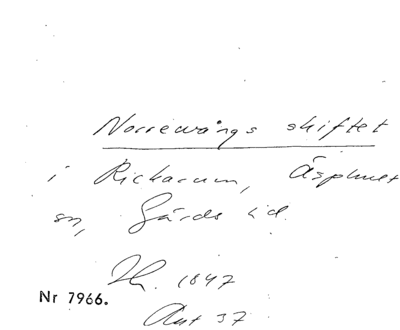 Norrevångs skiftet
i Rickarum, Äsphult
sn, Gärds hd.
1847
Nr 7966.
Akt 37